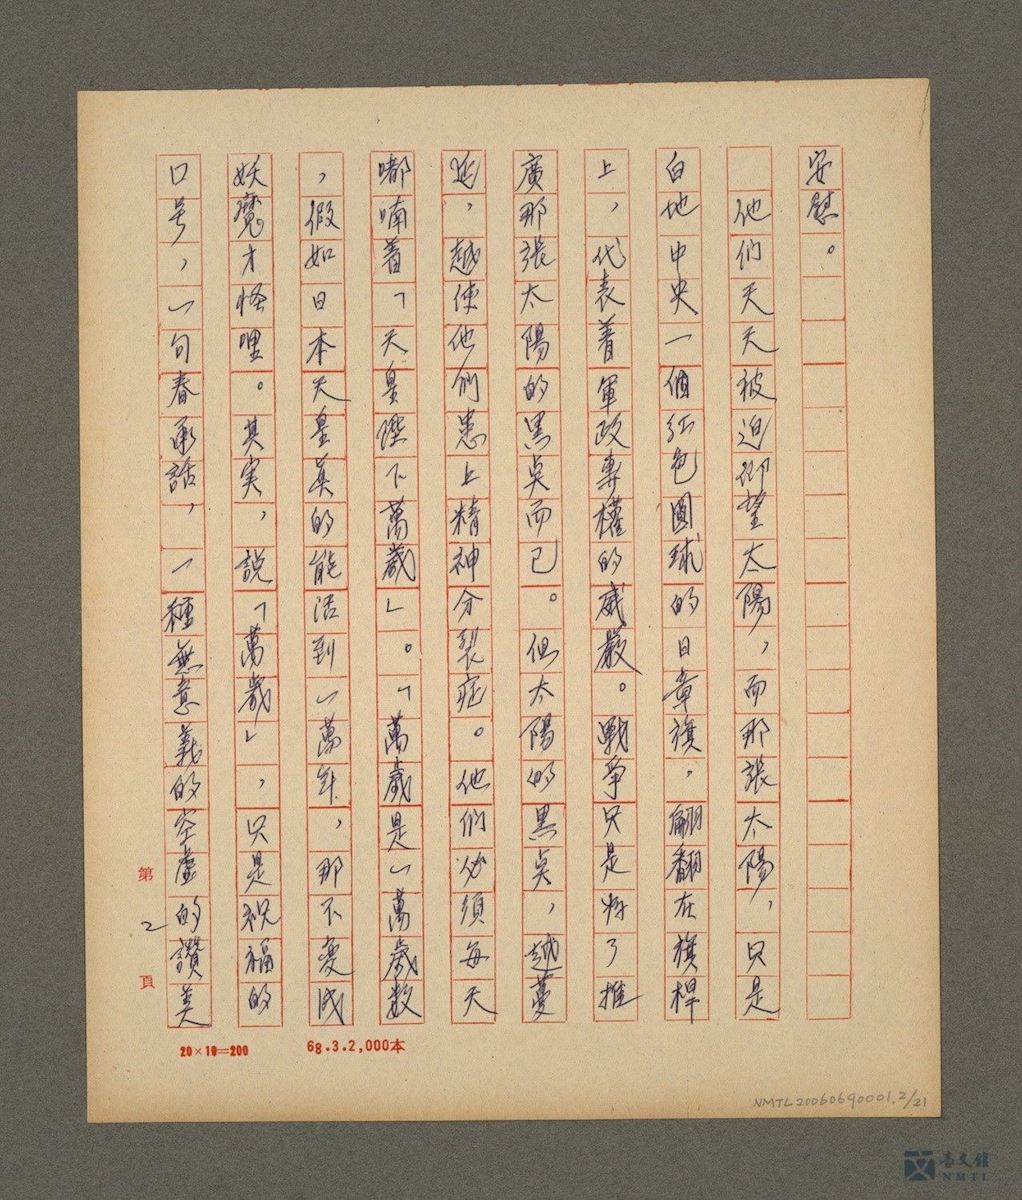 安慰。
他们天天被迫仰望太陽，而那張太陽，只是
白地中央一個紅色圓球的日章旗，翩翻在旗桿
上，代表着軍政專權的威嚴。戰爭只是為了推
廣那張太陽的黑奌而已。但太陽的黑奌，越蔓
延，越使他们患上精神分裂症。他们必須每天
嘟喃着「天皇陛下萬歲」。「萬歲是一萬歲数
，假如日本天皇真的能活到一萬年，那不変成
妖魔才怪哩。其実，説「萬歲」，只是祝福的
口号，一句奉承話，一種無意義的空虛的讚美
第2頁
20×10=200
68.3.2,000本
NMTL20060690001.2/21
臺文館
NMTL